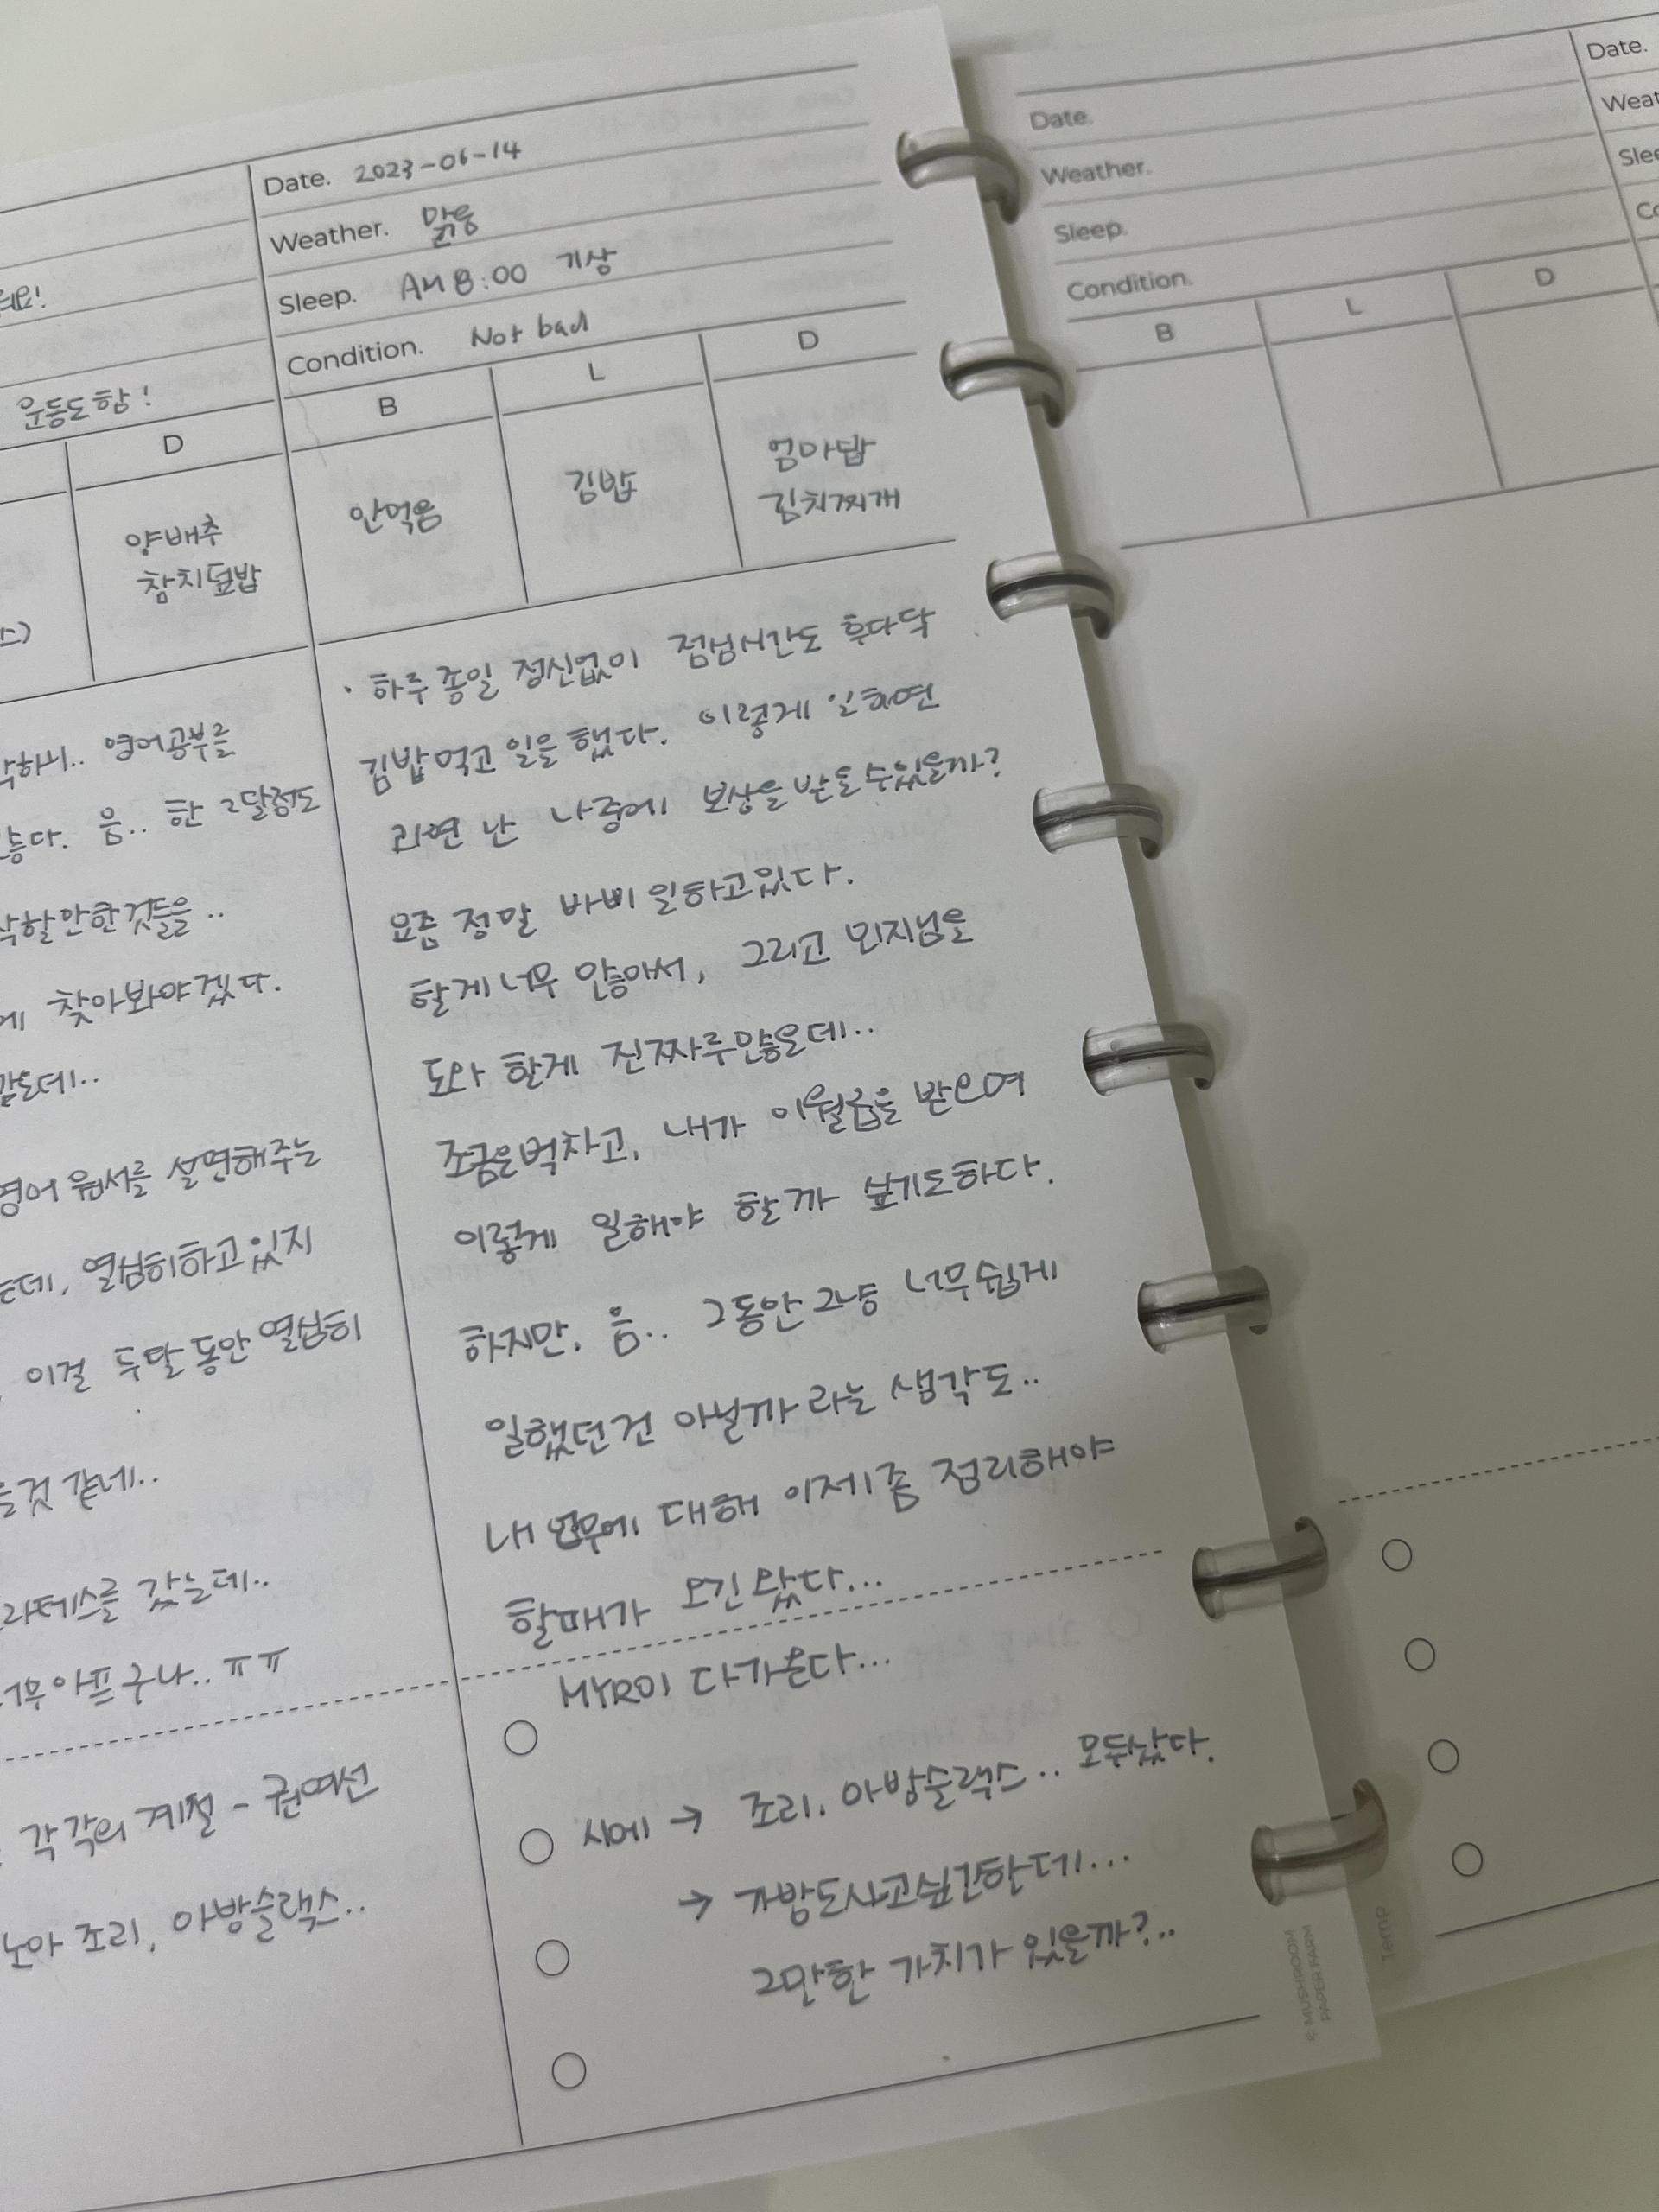 해요!
운동도 함!
D
양배추
참치덮밥
영어공부를
좋다. 음.. 한 2달정도
안한것들을..
에 찾아봐야겠다.
같은데..
영어 원서를 설명해주는
는데, 열심히하고있지
이걸 두달 동안 열심히
을것 같네..
라테스를 갔는데..
아프구나.. ㅠㅠ
각각의 계절 - 권여선
조리, 아방슬랙스..
Date. 2023-06-14
Weather. 맑음
Sleep. AM 8:00 기상
Condition. Not bad
B L D
안먹음
김밥
엄마밥
김치찌개
· 하루 종일 정신없이 점심시간도 후다닥
김밥먹고 일을 했다. 이렇게 일하면
과연 난 나중에 보상을 받을수있을까?
요즘 정말 바삐 일하고있다.
할게 너무 많아서, 그리고 민지님을
도와 할게 진짜루많은데..
조금은벅차고, 내가 이월급을 받으며
이렇게 일해야 할까 싶기도하다.
하지만, 음.. 그동안 그냥 너무쉽게
일했던건 아닐까 라는 생각도..
내 업무에 대해 이제좀 정리해야
할때가 오긴 왔다...
MYR이 다가온다...
시에 → 조리, 아방슬랙스.. 모두샀다.
→ 가방도사고싶긴한데...
그만한 가치가 있을까?..
© MUSHROOM
PAPER FARM
Date.
Weather.
Sleep.
Condition.
B L D
Temp
Date.
Weat
Slee
Co